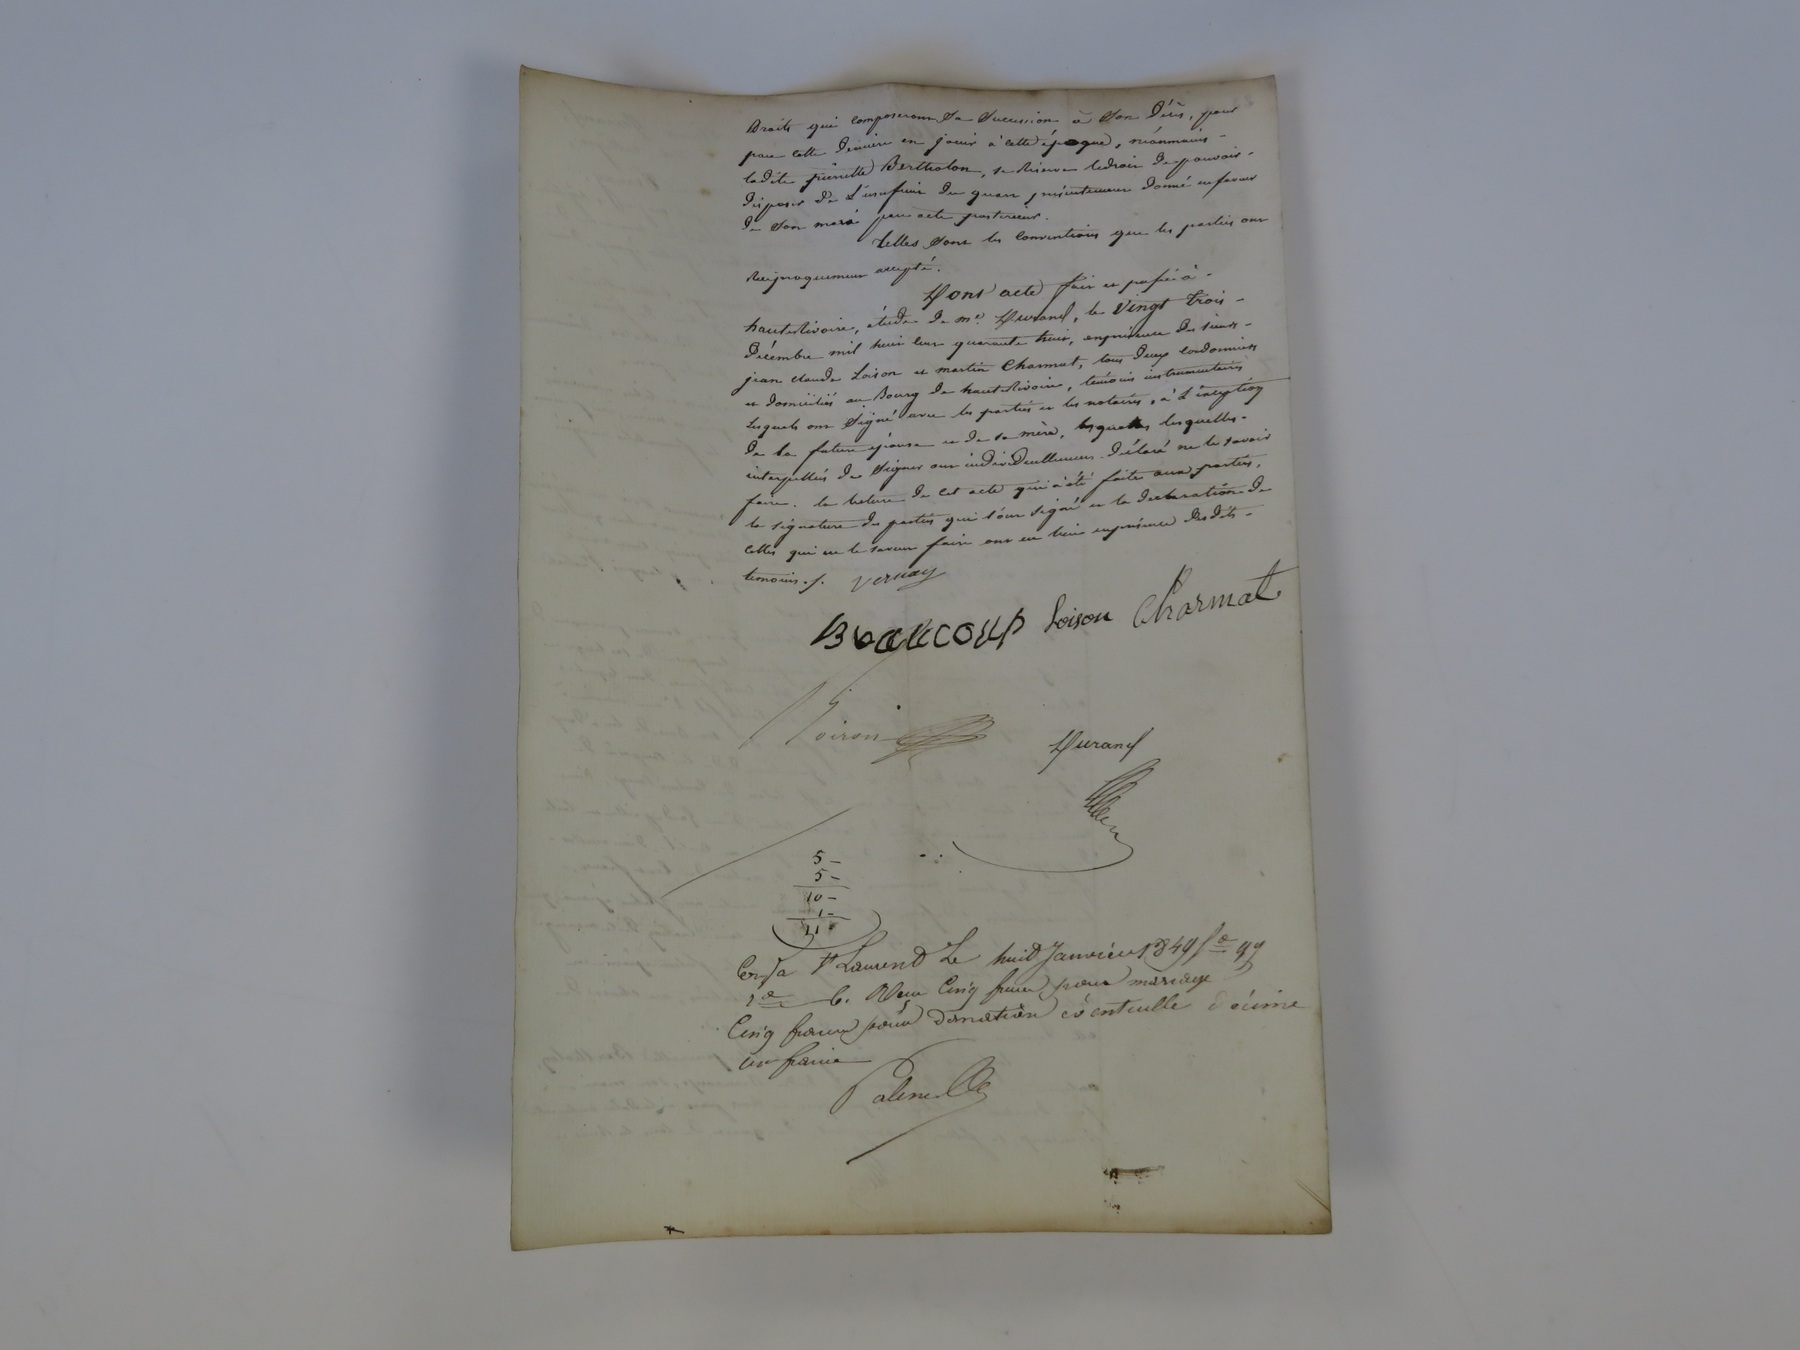 Droits qui composeront sa succession à son décès, pour
par cette dernière en jouir à cette époque, néanmoins -
ladite pierrette Bertholon, se réserve le droit de pouvoir -
disposer de l'usufruit du quart présentement donné en faveur
de son mari par acte postérieur.
Telles sont les conventions que les parties ont
réciproquement accepté.
Dont acte fait et passé à -
hauterivoire, étude de me. Durand, le Vingt trois -
décembre mil huit cent quarante huit, en présence des sieurs -
jean claude Loison et martin Charmat, tous deux cordonniers
et domiciliés au Bourg de hauterivoire, témoins instrumentaires
lesquels ont signé avec les parties et les notaires, à l'exception
de la future épouse et de sa mère, lesquelles -
interpellés de signer ont individuellement déclaré ne le savoir
faire. la lecture de cet acte qui a été faite aux parties,
la signature des parties qui l'ont signé et la déclaration de
celles qui ne le savent faire ont eu lieu en présence desdits -
témoins ./. Vernay
BEAUCOUP Loison Charmat
Durand
5 -
5 -
10 -
1 -
11
St Laurent Le huit Janvier 1849 fo 99
Ro c. Reçu Cinq francs pour mariage
Cinq francs pour donation éventuelle décime
un franc